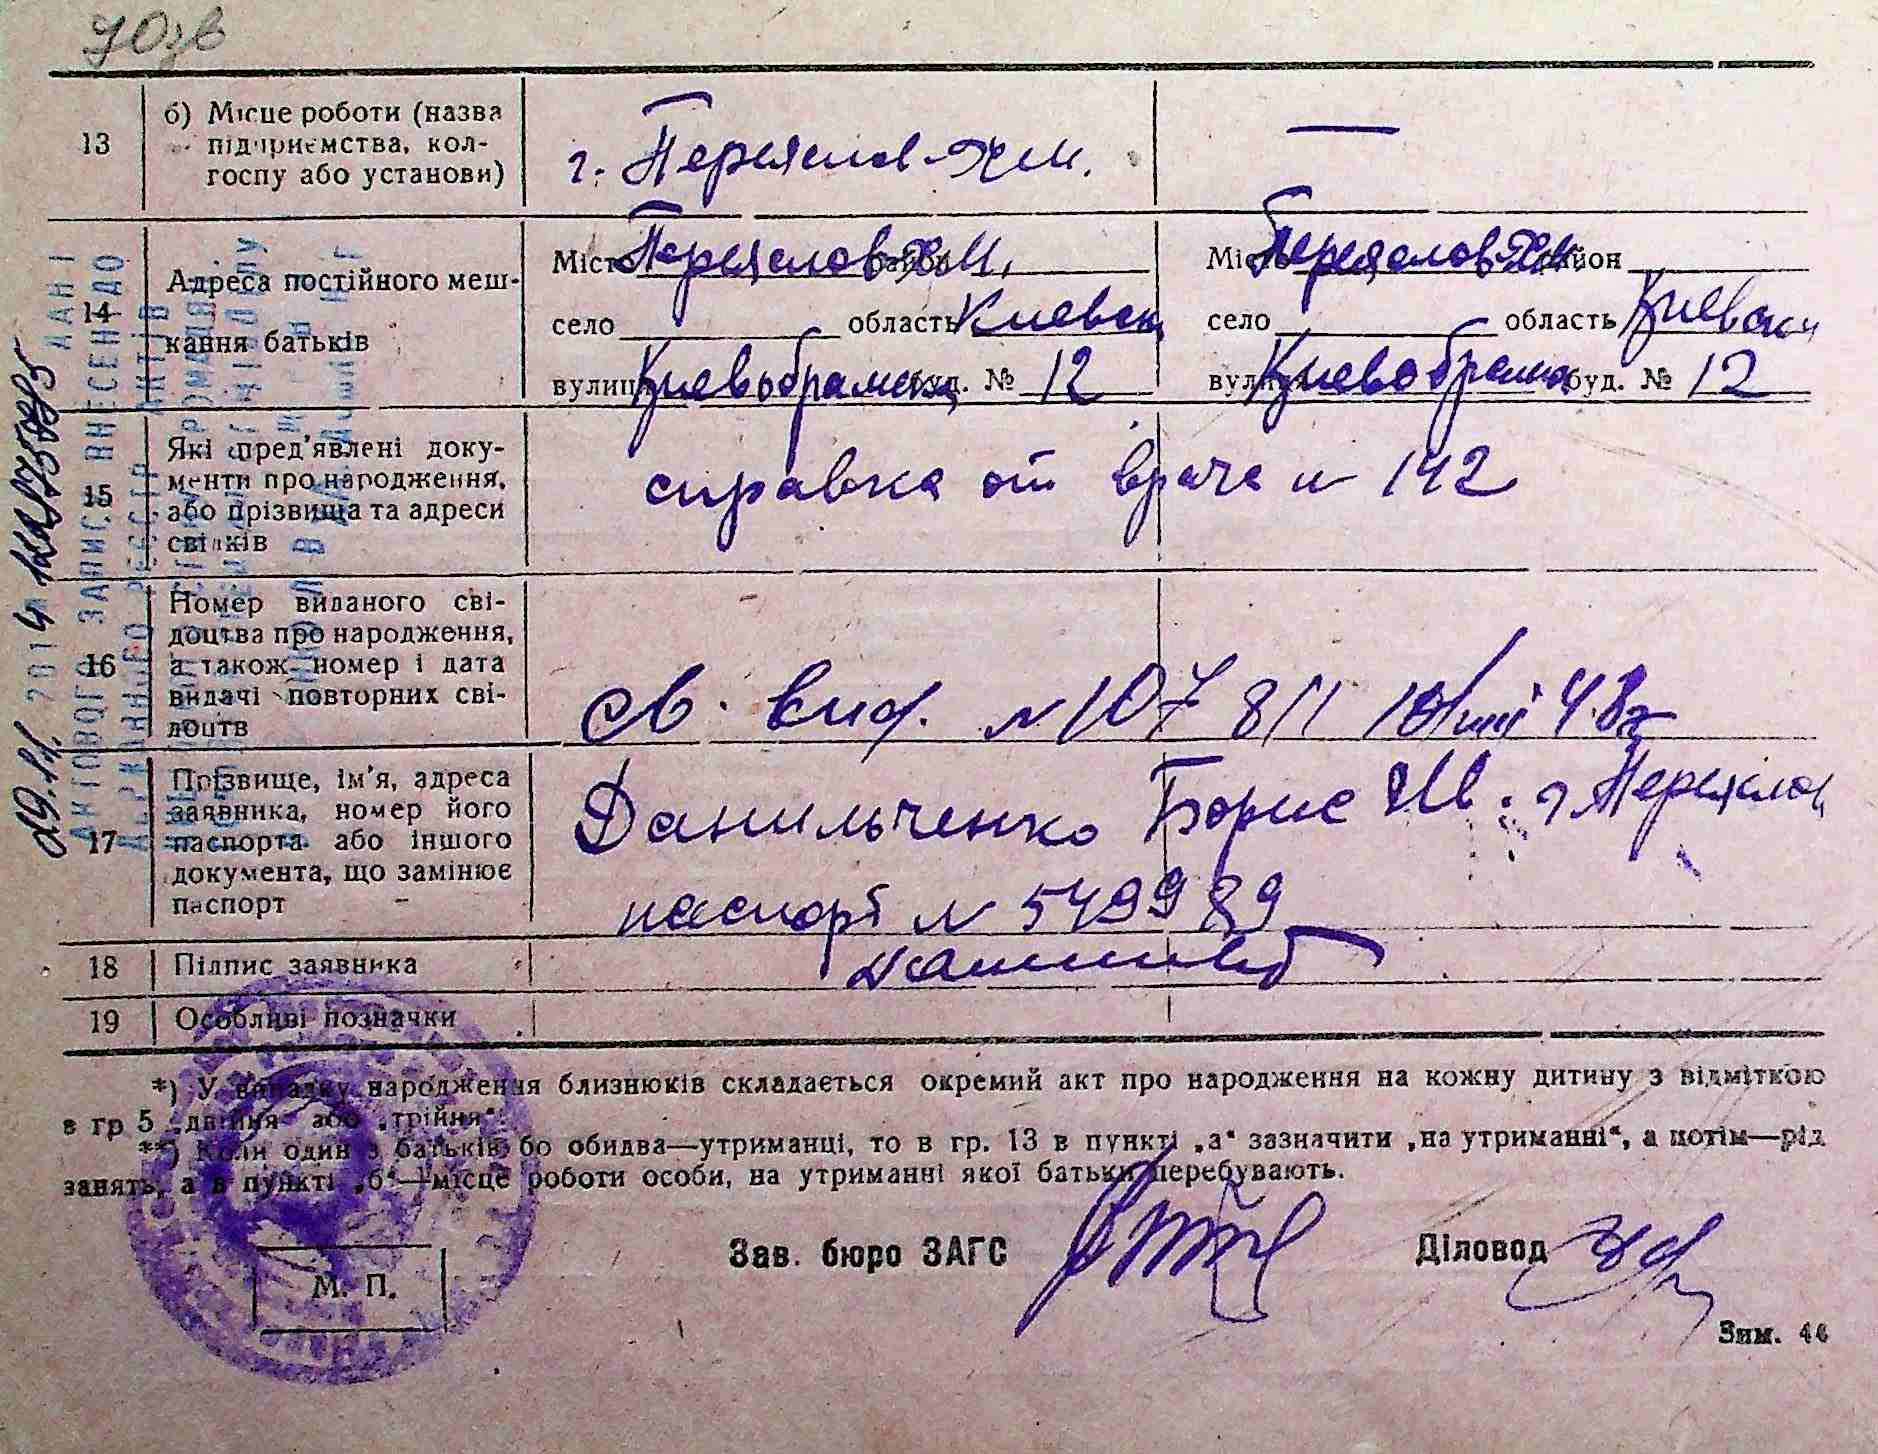 70зв
13
б) Місце роботи (назва
підприємства, кол-
госпу або установи)
г. Переяслав-Хм.
—
14
Адреса постійного меш-
кання батьків
Місто Переяслов Хм.
село область Киевск
вулиця Киевобрамска буд. № 12
Місто Переяслов Хм. район
село область Киевск
вулиця Киевобрамска буд. № 12
15
Які пред'явлені доку-
менти про народження,
або прізвища та адреси
свідків
справка от врача н 142
16
Номер виданого сві-
доцтва про народження,
а також номер і дата
видачі повторних сві-
доцтв
св. вид. N 107 8/І 48г
17
Прізвище, ім'я, адреса
заявника, номер його
паспорта або іншого
документа, що замінює
паспорт
Данильченко Борис Ив. г Переяслав
паспорт N 549989
18
Підпис заявника
19
Особливі позначки
*) У випадку народження близнюків складається окремий акт про народження на кожну дитину з відміткою
в гр 5 „двійня“ або „трійня“.
**) Коли один з батьків бо обидва—утриманці, то в гр. 13 в пункті „а“ зазначити „на утриманні“, а потім—рід
занять, а в пункті „б“—місце роботи особи, на утриманні якої батьки перебувають.
Зав. бюро ЗАГС
Діловод
М. П.
Зим. 44
29.11. 2014
ДАНІ
АКТОВОГО ЗАПИСУ ВНЕСЕНІ ДО